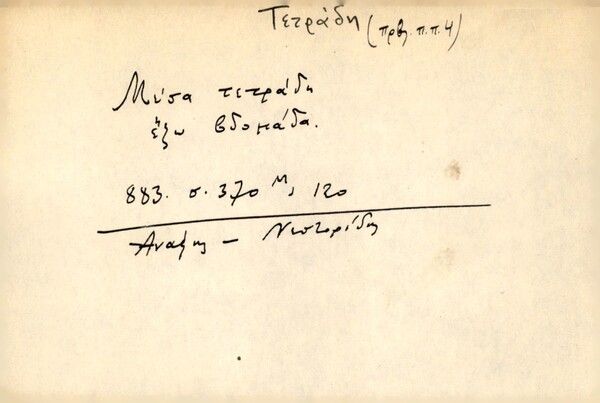 Τετράδη (πρβ. π.π. 4)
Μέσα τετράδη
έξω βδομάδα.
883. σ. 370 Μ, 120
Ανάφης - Νεστορίδης